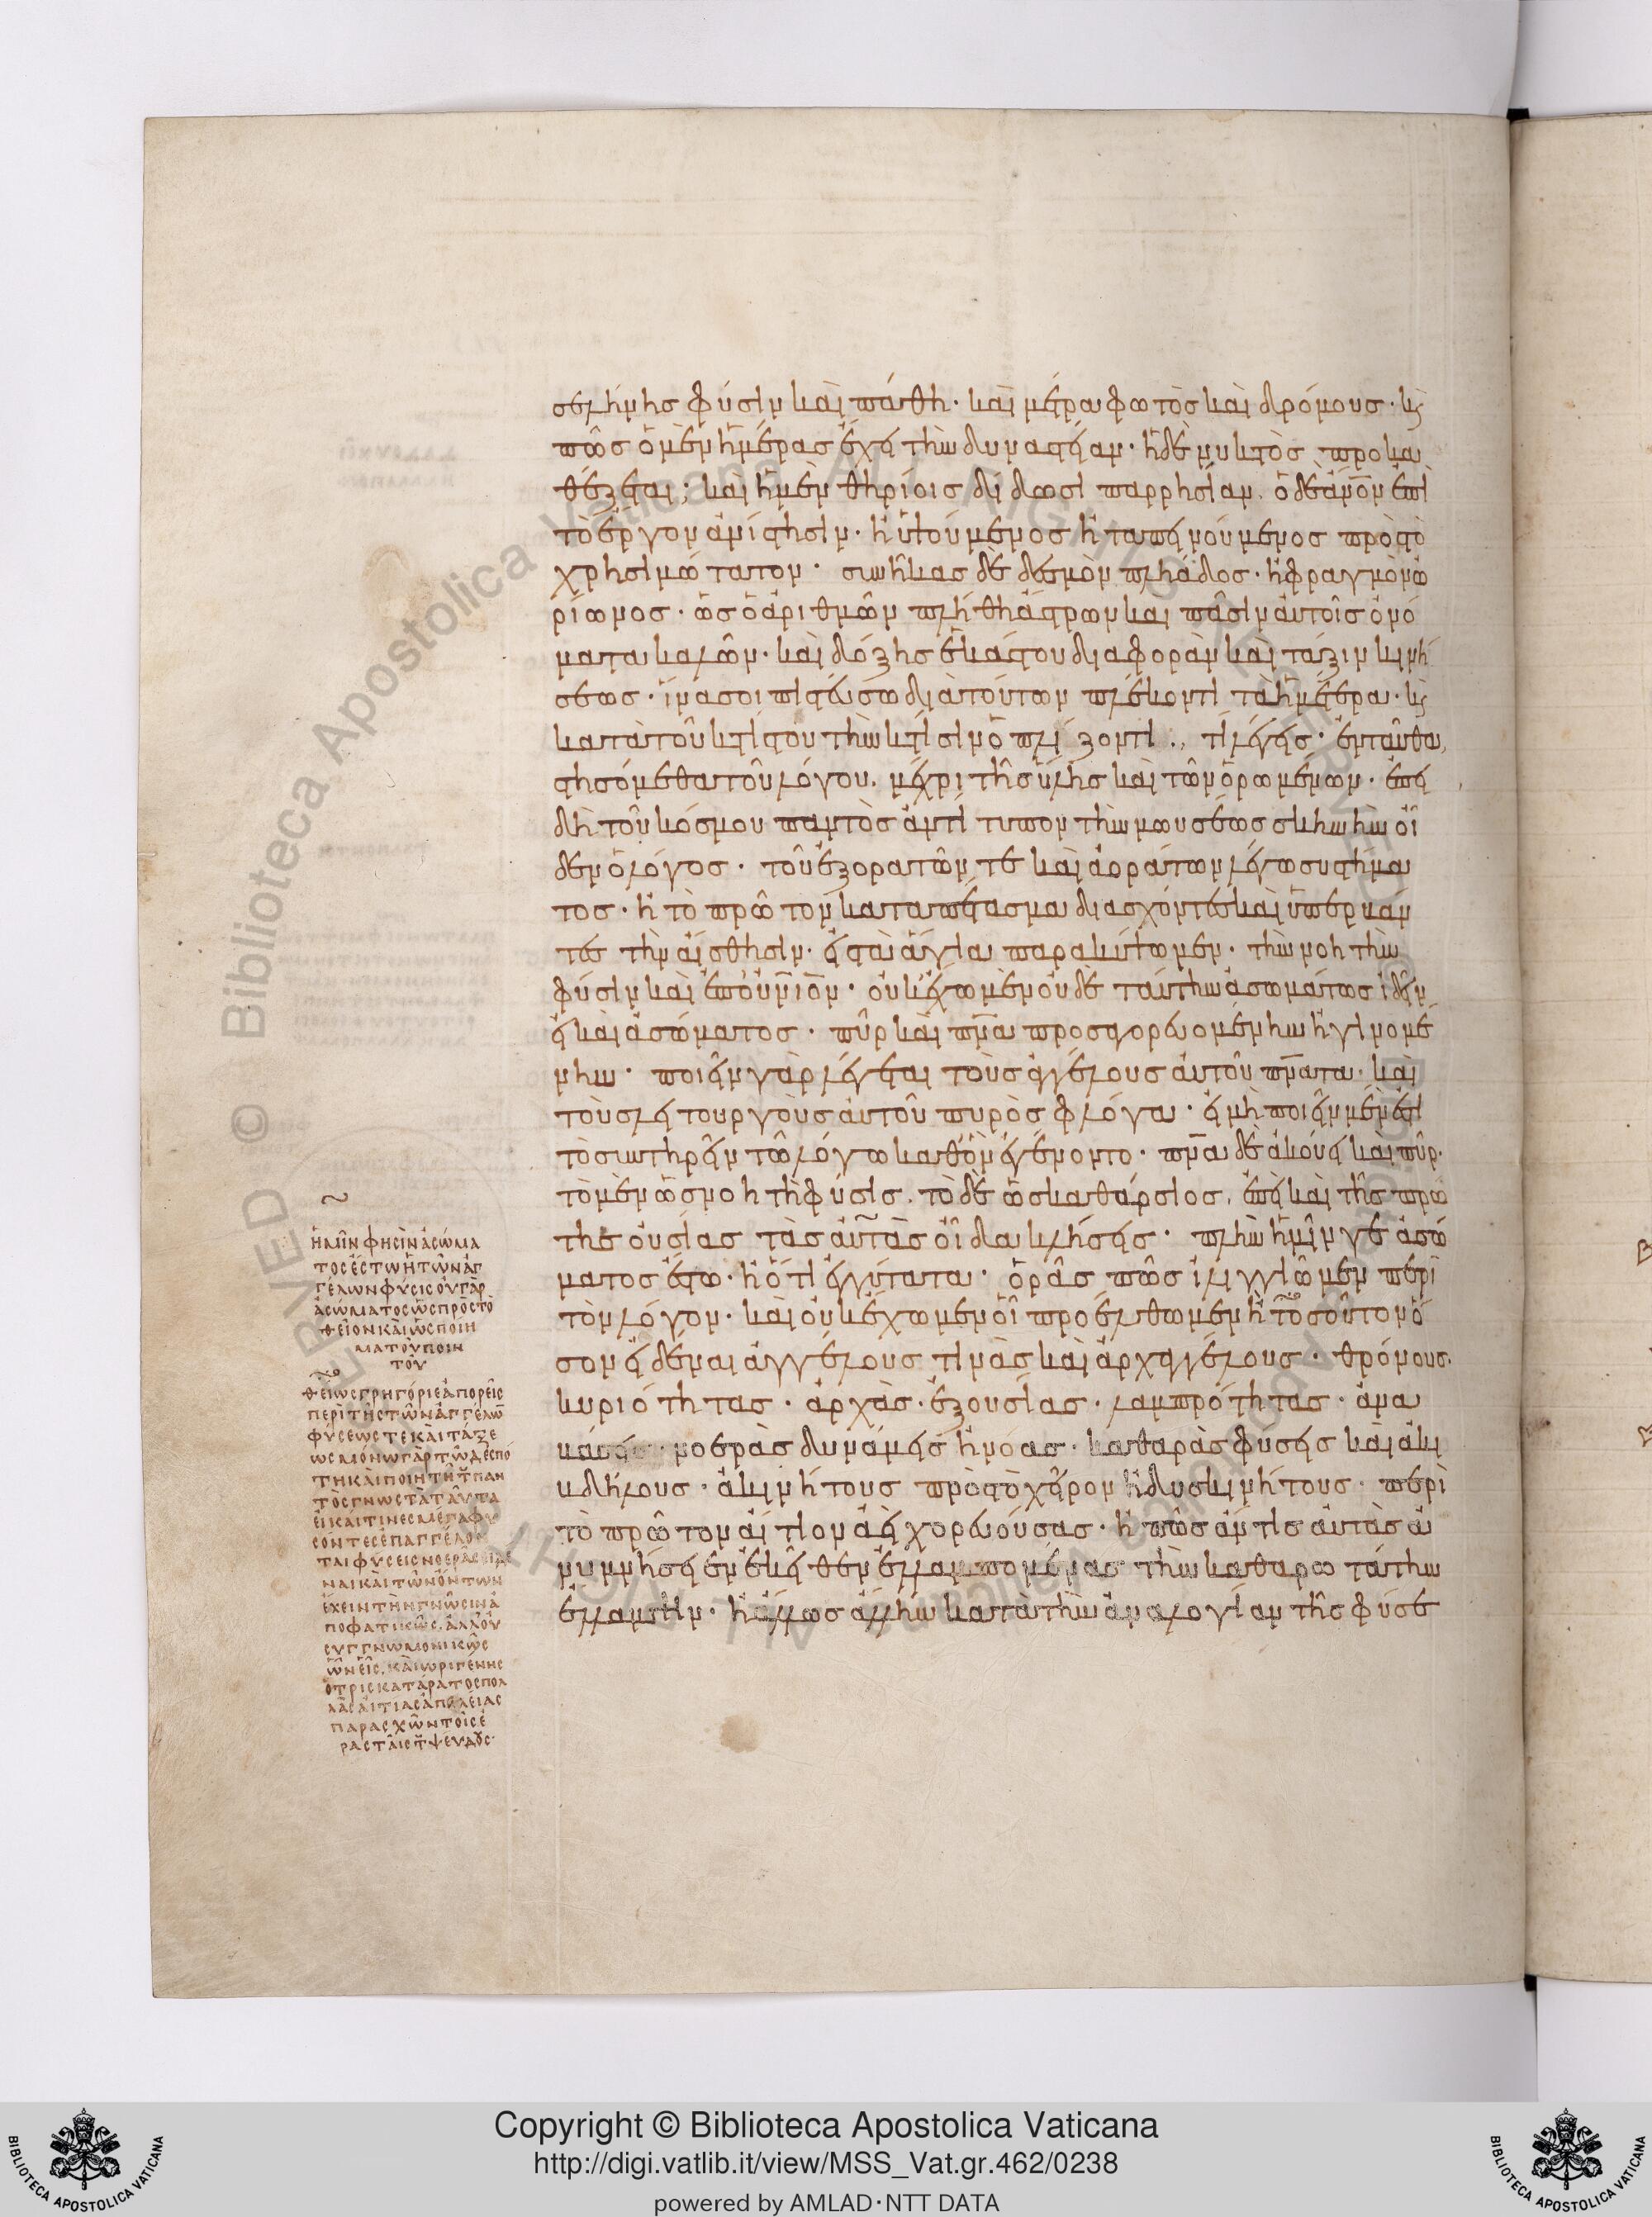 σελήνης φύσιν καὶ πάθη· καὶ μέτρα φωτὸς καὶ δρόμους· κ(αὶ)
πῶς ὁ μὲν ἡμέρας ἔχει τὴν δυναστείαν· ἡ δὲ νυκτὸς προκα
θέζεται; καὶ ἡ μὲν θηρίοις δίδωσι παρρησίαν. ὁ δὲ ἀν̅ο̅ν̅ ἐπὶ
τὸ ἔργον ἀνίστησιν· ἢ ὑψούμενος ἢ ταπεινούμενος πρὸς τὸ
χρησιμώτατον· συνῆκας δὲ δεσμὸν πλειάδος· ἢ φραγμὸν ὠ
ρίωνος· ὡς ὁ ἀριθμῶν πλήθη ἄστρων καὶ πᾶσιν αὐτοῖς ὀνό
ματα καλῶν· καὶ δόξης ἑκάστου διαφορὰν καὶ τάξιν κινή
σεως· ἵνα σοι πιστεύσω διὰ τούτων πλέκοντι τὰ ἡμέτερα· κ(αὶ)
κατὰ τοῦ κτίστου τὴν κτίσιν ὁπλίζοντι., τί λέγεις· ἐνταῦθα
στησόμεθα τοῦ λόγου. μέχρι τῆς ὕλης καὶ τῶν ὁρωμένων· ἐπει
δὴ τοῦ κόσμου παντὸς ἀντίτυπον τὴν μωυσέως σκηνὴν οἶ
δεν ὁ λόγος· τοῦ ἐξ ὁρατῶν τε καὶ ἀοράτων λέγω συστήμα
τος· ἢ τὸ πρῶτον καταπέτασμα διασχόντες καὶ ὑπερβάν
τες τὴν αἴσθησιν· εἰς τὰ ἅγια παρακύψωμεν· τὴν νοητὴν
φύσιν καὶ ἐπουνιον· οὐκ ἔχωμεν οὐδὲ ταύτην ἀσωμάτως ἰδεῖν
εἰ καὶ ἀσώματος· πῦρ καὶ πνα προσαγορευομένην ἢ γινομέ
νην· ποιεῖν γὰρ λέγεται τοὺς ἀγγέλους αὐτοῦ πνατα· καὶ
τοὺς λειτουργοὺς αὐτοῦ πυρὸς φλόγα· εἰ μὴ ποιεῖν μέν ἐστι
τὸ συντηρεῖν τῷ λόγω καθ' ὃν ἐγένοντο· πνα δὲ ἀκούει καὶ πῦρ·
τὸ μὲν ὡς νοητὴ φύσις. τὸ δὲ ὡς καθάρσιος. ἐπεὶ καὶ τῆς πρώ
της οὐσίας τὰς αὐτὰς οἶδα κλήσεις· πλὴν ἡμῖν γε ἀσώ
ματος ἔστω· ἢ ὅτι ἐγγύτατα· ὁρᾷς πῶς ἰλιγγιῶμεν περὶ
τὸν λόγον· καὶ οὐκ ἔχωμεν οἷ προέλθωμεν ἢ τοσοῦτον ὅ
σον εἰδέναι ἀγγέλους τινὰς καὶ ἀρχαγγέλους· θρόνους.
κυριότητας· ἀρχὰς· ἐξουσίας· λαμπρότητας· ἀνα
βάσεις· νοερὰς δυνάμεις ἢ νόας· καθαρὰς φύσεις καὶ ἀκι
βδήλους· ἀκινήτους πρὸς τὸ χεῖρον ἢ δυσκινήτους· περὶ
τὸ πρῶτον αἴτιον ἀεὶ χορευούσας· ἢ πῶς ἄν τις αὐτὰς ἀ
νυμνήσειεν ἐκεῖθεν ἐλλαμπομένας τὴν καθαρωτάτην
ἔλλαμψιν· ἢ ἄλλως ἄλλην κατὰ τὴν ἀναλογίαν τῆς φύσε
ἡμῖν φησὶν ἀσώμα
τος ἔστω ἡ τῶν ἀγ
γέλων φύσις οὐ γὰρ
ἀσώματος ὡς πρὸς τὸ
θεῖον καὶ ὡς ποίη
μα τοῦ ποιη
τοῦ
θείως γρηγόριε ἀπορεῖς
περὶ τῆς τῶν ἀγγέλων
φύσεώς τε καὶ τάξε
ως μόνω γὰρ τῷ δεσπό
τη καὶ ποιητῇ τ(οῦ) παν
τὸς γνωστὰ ταῦτα
εἰ καί τινες μέγα φυ
σόντες ἐπαγγέλον
ται φύσεις νοερὰς εἰδέ
ναι καὶ τῶν ὄντων
ἔχειν τὴν γνῶσιν ἀ
ποφατικῶς. ἀλλ' οὐ
συγγνωμονικῶς
ὧν εἷς. καὶ ὠριγένης
ὁ τρισκατάρατος πολ
λὰς αἰτίας ἀπωλείας
παρασχὼν τοῖς ἐ
ρασταῖς τ(οῦ) ψεύδους·
Copyright © Biblioteca Apostolica Vaticana
http://digi.vatlib.it/view/MSS_Vat.gr.462/0238
powered by AMLAD·NTT DATA
BIBLIOTECA APOSTOLICA VATICANA
BIBLIOTECA APOSTOLICA VATICANA